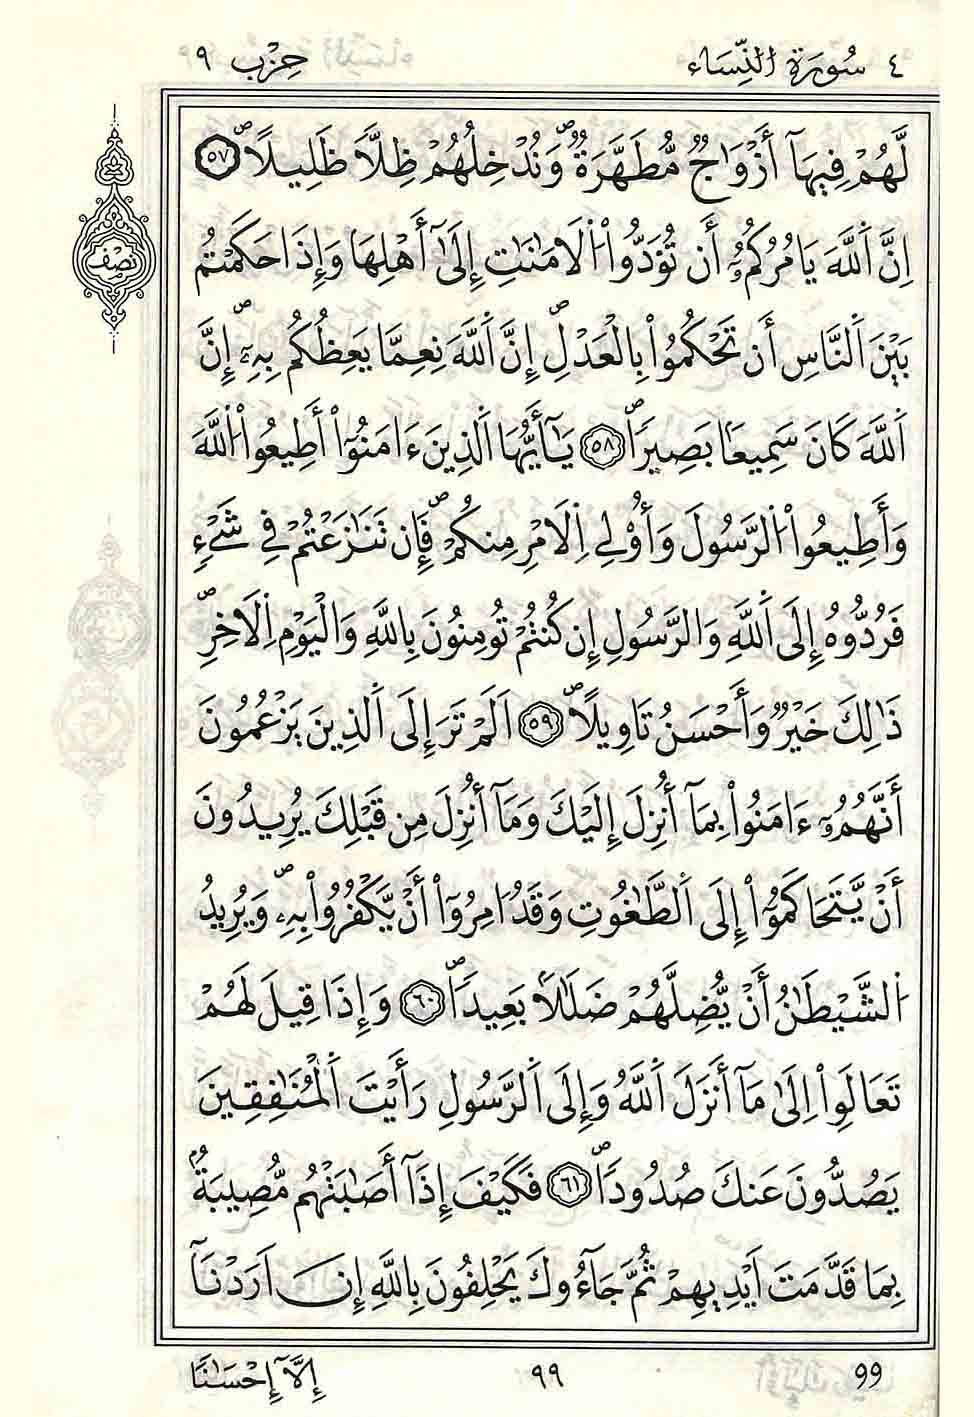 ٤ سُورَةُ النِّسَاء حِزْب ٩
لَّهُمْ فِيهَآ أَزْوَٰجٞ مُّطَهَّرَةٞۖ وَنُدْخِلُهُمْ ظِلّٗا ظَلِيلًاۖ ٥٧
نِصْف
اِنَّ اَ۬للَّهَ يَامُرُكُمُۥٓ أَن تُؤَدُّواْ اُ۬لَامَٰنَٰتِ إِلَىٰٓ أَهْلِهَا وَإِذَا حَكَمْتُم
بَيْنَ اَ۬لنَّاسِ أَن تَحْكُمُواْ بِالْعَدْلِۖ إِنَّ اَ۬للَّهَ نِعِمَّا يَعِظُكُم بِهِۦٓۖ إِنَّ
اَ۬للَّهَ كَانَ سَمِيعَۢا بَصِيراٗۖ ٥٨ يَٰٓأَيُّهَا اَ۬لذِينَ ءَامَنُوٓاْ أَطِيعُواْ اُ۬للَّهَ
وَأَطِيعُواْ اُ۬لرَّسُولَ وَأُوْلِے اِ۬لَامْرِ مِنكُمْۖ فَإِن تَنَٰزَعْتُمْ فِے شَےْءٖ
فَرُدُّوهُ إِلَى اَ۬للَّهِ وَالرَّسُولِ إِن كُنتُمْ تُومِنُونَ بِاللَّهِ وَالْيَوْمِ اِ۬لَاخِرِۖ
ذَٰلِكَ خَيْرٞ وَأَحْسَنُ تَاوِيلًاۖ ٥٩ اَلَمْ تَرَ إِلَى اَ۬لذِينَ يَزْعُمُونَ
أَنَّهُمُۥٓ ءَامَنُواْ بِمَآ أُنزِلَ إِلَيْكَ وَمَآ أُنزِلَ مِن قَبْلِكَ يُرِيدُونَ
أَنْ يَّتَحَاكَمُوٓاْ إِلَى اَ۬لطَّٰغُوتِ وَقَدُ ا۟مِرُوٓاْ أَنْ يَّكْفُرُواْ بِهِۦۖ وَيُرِيدُ
اُ۬لشَّيْطَٰنُ أَنْ يُّضِلَّهُمْ ضَلَٰلَاۢ بَعِيداٗۖ ٦٠ وَإِذَا قِيلَ لَهُمْ
تَعَالَوِاْ اِلَىٰ مَآ أَنزَلَ اَ۬للَّهُ وَإِلَى اَ۬لرَّسُولِ رَأَيْتَ اَ۬لْمُنَٰفِقِينَ
يَصُدُّونَ عَنكَ صُدُوداٗۖ ٦١ فَكَيْفَ إِذَآ أَصَٰبَتْهُم مُّصِيبَةُۢ
بِمَا قَدَّمَتَ اَيْدِيهِمْ ثُمَّ جَآءُوكَ يَحْلِفُونَ بِاللَّهِ إِنَ اَرَدْنَآ
99 ٩٩ إِلَّآ إِحْسَٰنٗا